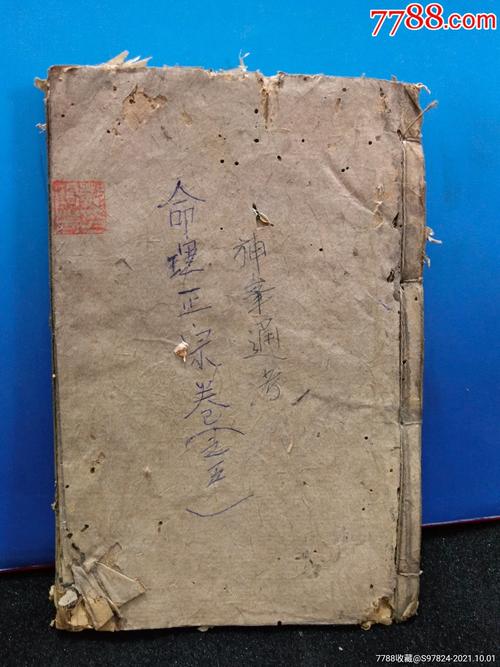 7788.com
神峯通考
命理正宗卷(五)
7788收藏@S97824-2021.10.01